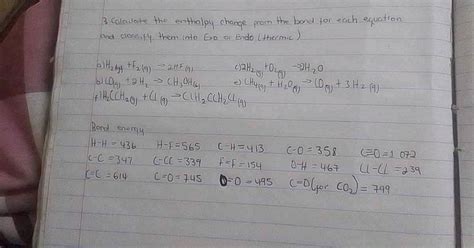 3. Calculate the enthalpy change from the bond for each equation
and classify them into Exo or Endo (thermic)
a) H₂(g) + F₂(g) → 2HF(g) c) 2H₂(g) + O₂(g) → 2H₂O
b) CO(g) + 2H₂ → CH₃OH(g) e) CH₄(g) + H₂O(g) → CO(g) + 3H₂(g)
f) H₂CCH₂(g) + Cl(g) → ClH₂CCH₂Cl(g)
Bond enemy
H-H = 436 H-F = 565 C-H = 413 C-O = 358 C≡O = 1 072
C-C = 347 C-Cl = 339 F-F = 154 O-H = 467 Cl-Cl = 239
C=C = 614 C=O = 745 O=O = 495 C=O (for CO₂) = 799